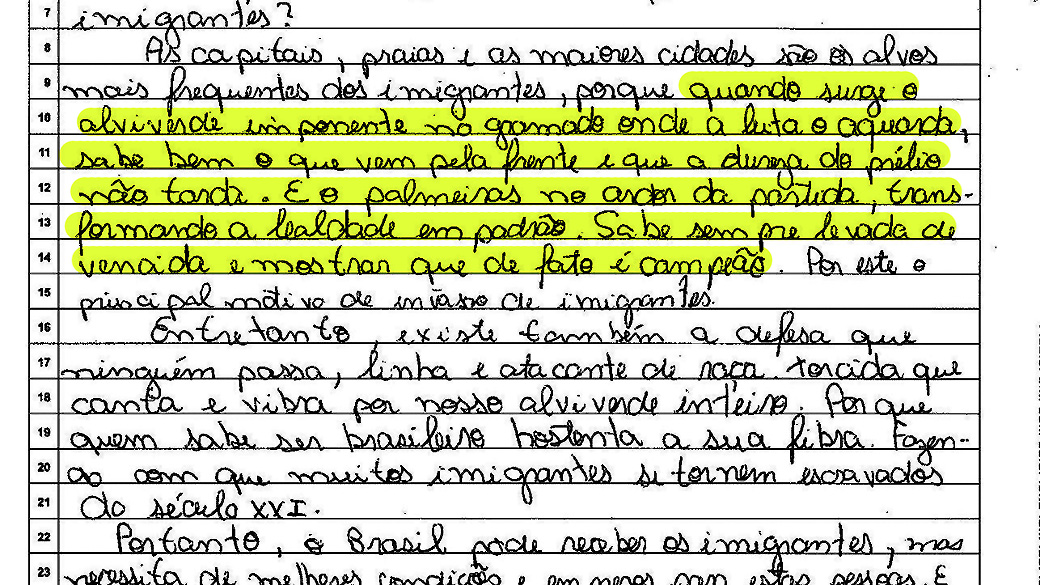 7 imigrantes?
8 As capitais, praias e as maiores cidades são os alvos
9 mais frequentes dos imigrantes, porque quando surge o
10 alviverde imponente no gramado onde a luta o aguarda,
11 sabe bem o que vem pela frente e que a dureza do prélio
12 não tarda. E o palmeiras no ardor da partida, trans-
13 formando a lealdade em padrão. Sabe sempre levada de
14 vencida e mostrar que de fato é campeão. Por este o
15 principal motivo de invasão de imigrantes.
16 Entretanto, existe também a defesa que
17 ninguém passa, linha e atacante de raça. torcida que
18 canta e vibra por nosso alviverde inteiro. Por que
19 quem sabe ser brasileiro hostenta a sua fibra. Fazen-
20 do com que muitos imigrantes se tornem escravados
21 do século XXI.
22 Portanto, o Brasil pode receber os imigrantes, mas
23 necessita de melhores condições e